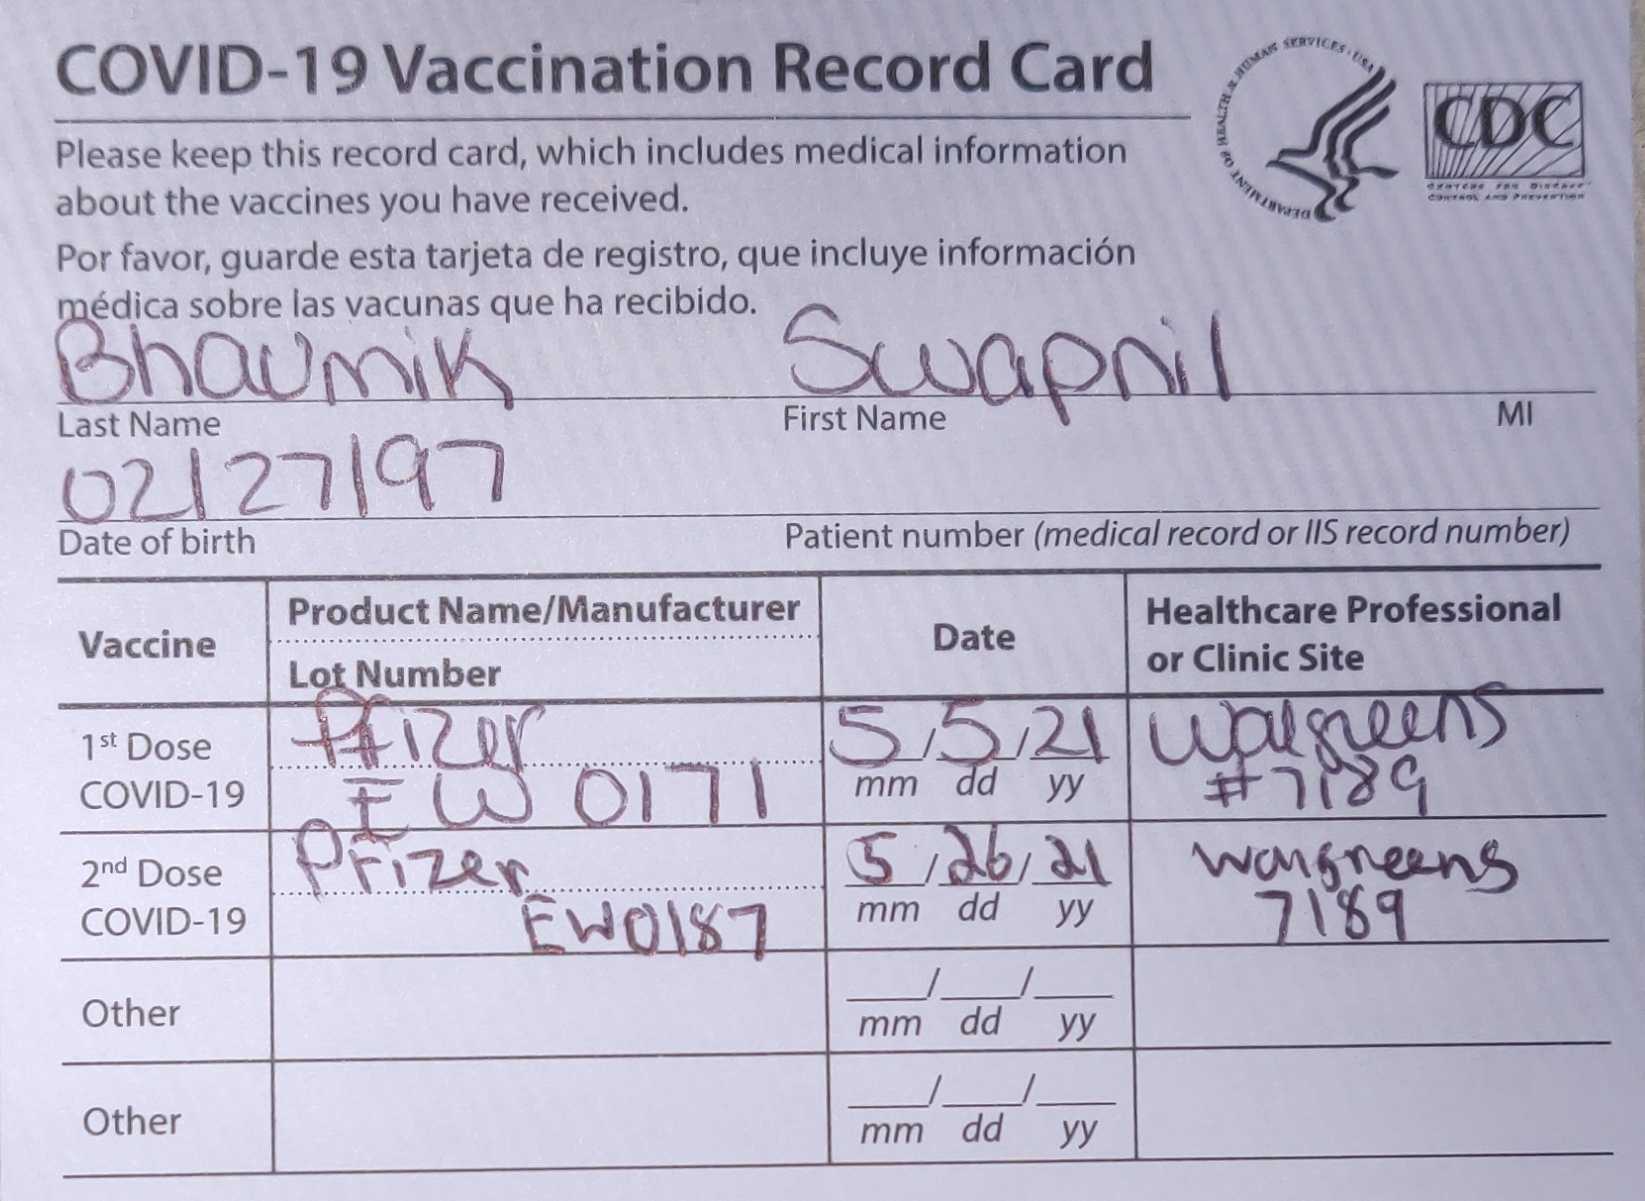 COVID-19 Vaccination Record Card
DEPARTMENT OF HEALTH & HUMAN SERVICES · USA
CDC
CENTERS FOR DISEASE
CONTROL AND PREVENTION
Please keep this record card, which includes medical information
about the vaccines you have received.
Por favor, guarde esta tarjeta de registro, que incluye información
médica sobre las vacunas que ha recibido.
Bhaumik Swapnil
Last Name First Name MI
02/27/97
Date of birth Patient number (medical record or IIS record number)
Vaccine
Product Name/Manufacturer
Lot Number
Date
Healthcare Professional
or Clinic Site
1st Dose
COVID-19
Pfizer
EW 0171
5/5/21
mm dd yy
Walgreens
#7189
2nd Dose
COVID-19
Pfizer
EW0187
5/26/21
mm dd yy
Walgreens
7189
Other
___/___/___
mm dd yy
Other
___/___/___
mm dd yy